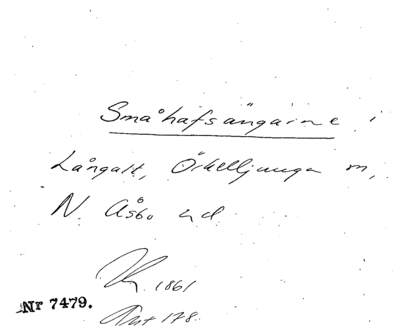 Småhafsängarne i
Långalt, Örkelljunga m,
N. Åsbo hd
K. 1861
Nr 7479.
Akt 178.